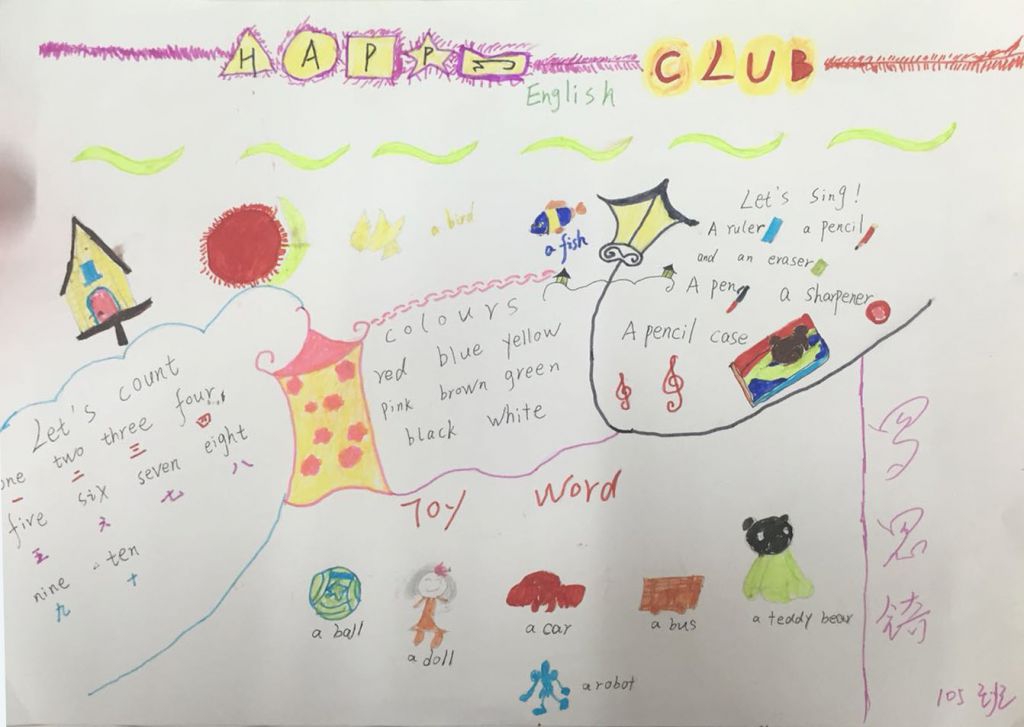 HAPPY CLUB
English
a bird
a fish
Let's sing!
A ruler a pencil
and an eraser
A pen a sharpener
A pencil case
colours
red blue yellow
pink brown green
black white
Let's count
one two three four
一 二 三 四
five six seven eight
五 六 七 八
nine ten
九 十
Toy Word
a ball
a doll
a car
a bus
a teddy bear
a robot
思
105班